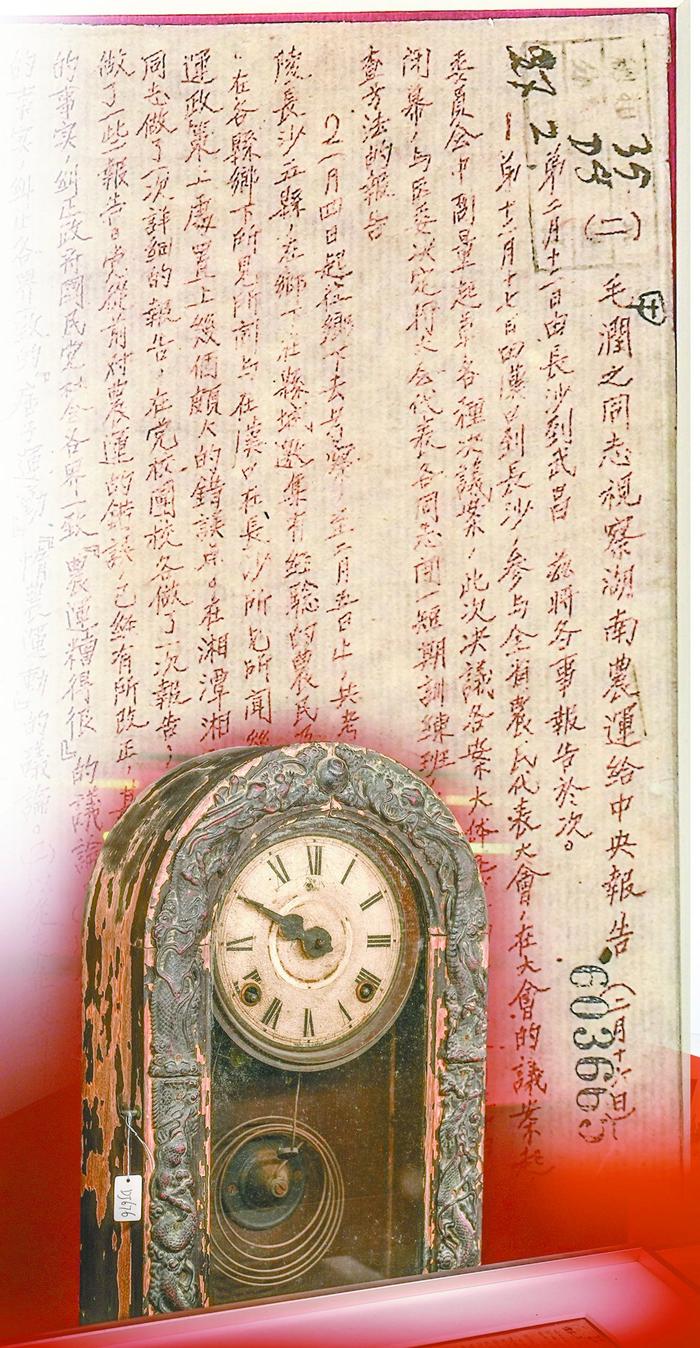 毛潤之同志視察湖南農運給中央報告（二月十六日）
（二）
35
603665
第二月十二日由長沙到武昌 茲將各事報告於次。
一 第十二月十七日由漢口到長沙，参与全省農民代表大會，在大會的議案起
委員会中商量起草各種决議案，此次决議各案大体
闭幕，与区委决定将大会代表各同志開一短期訓練班
查方法的報告
2 一月四日起往鄉下去考察，至二月五日止，共考
陵長沙五縣，在鄉下在縣城邀集有經驗的農民
在各縣鄉下所見所聞与在漢口在長沙所見所聞
運政策上處置上幾個頗大的錯誤点。在湘潭湘
同志做了一次詳細的報告，在党校團校各做了一次報告；
做了一些報告。党從前对農運的錯誤，已經有所改正，
的事实，糾正政府國民党社会各界一致『農運糟得很』的議論
的事实，糾正各界 運動，惰農運動』的議論。
DJ676